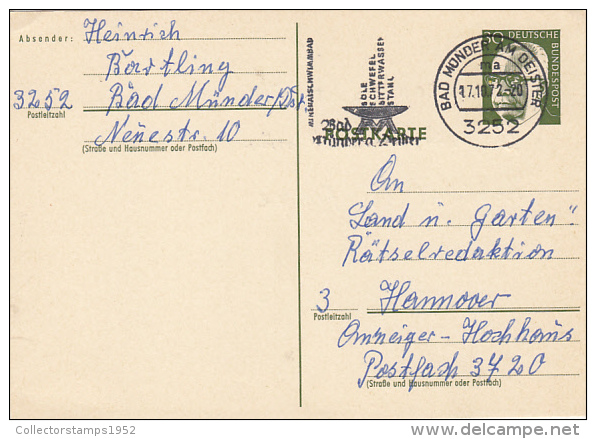 Absender: Heinrich
Bartling
3252 Bad Münder/Dst.
Postleitzahl
Neuestr. 10
(Straße und Hausnummer oder Postfach)
SOLE
SCHWEFEL
BITTERWASSER
STAHL
Bad
POSTKARTE
30 DEUTSCHE BUNDESPOST
BAD MÜNDER AM DEISTER
ma
17.10.72-20
3252
An
"Land u. Garten"
Rätselredaktion
3 Hannover
Postleitzahl
Anzeiger-Hochhaus
Postfach 3720
(Straße und Hausnummer oder Postfach)
Collectorstamps1952
delcampe.net